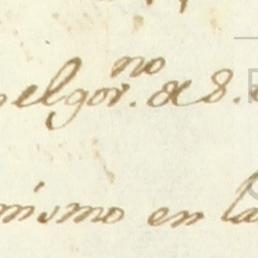 el gor.no de S.
mismo en la